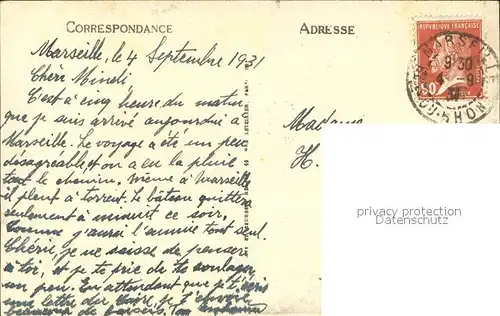 CORRESPONDANCE
ADRESSE
RÉPUBLIQUE FRANÇAISE
50
MARSEILLE
9 30
4 - 9
31
Marseille, le 4 Septembre 1931
Chéri Mineli
C'est à cinq heure du matin
que je suis arrivé aujourdui à
Marseille. Le voyage a été un peu
désagréable, et on a eu la pluie
tout le chemin. Même à Marseille
il pleut à torrent. Le bâteau quittera
seulement à minuit ce soir.
Comme j'aurai l'ennuie tout seul.
Chérie, je ne saisse de penser
à toi, et je te prie de te soulager
un peu. En attendant que je t'écris
une lettre du Caire, je t'envoie
beaucoup de baisers. Ton
Madame
H.
privacy protection
Datenschutz